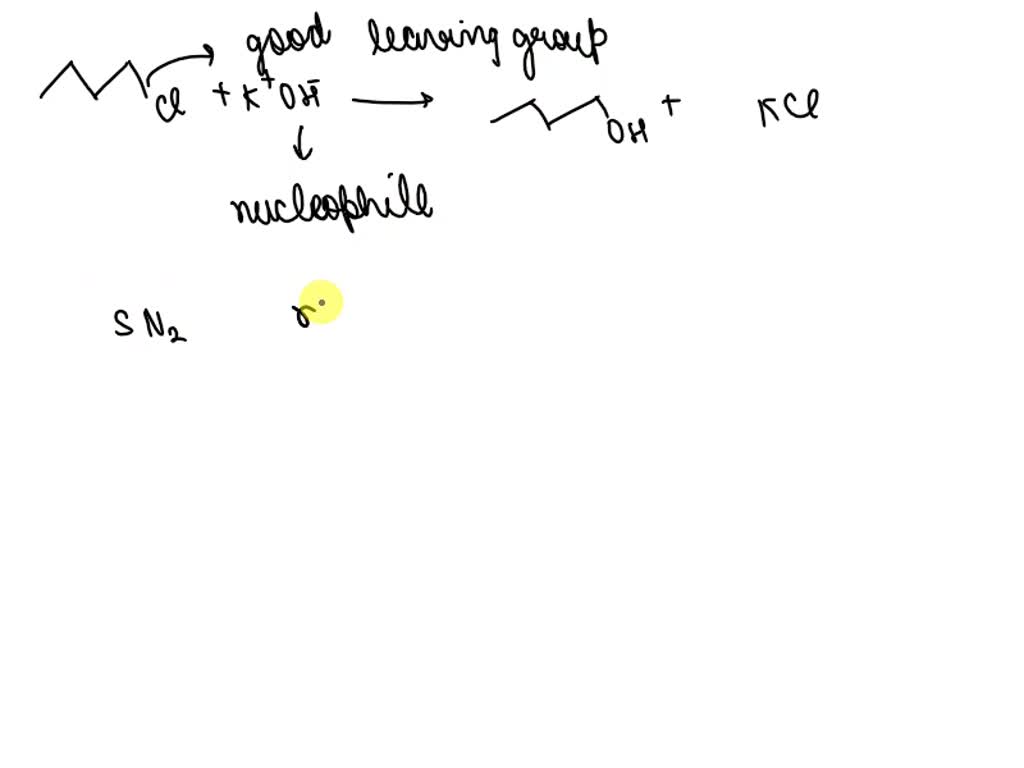 good leaving group
Cl + K⁺ OH⁻ → OH + KCl
↓
nucleophile
SN₂ r